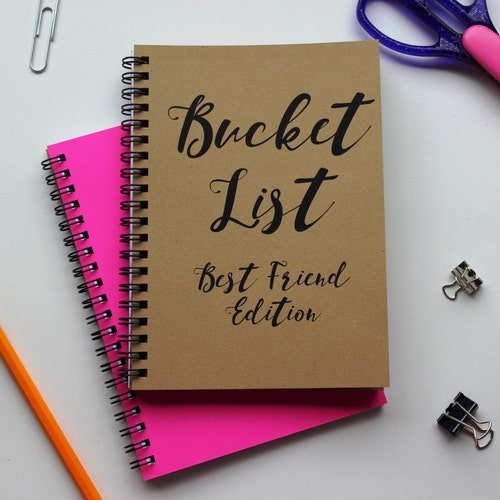 Bucket
List
Best Friend
Edition